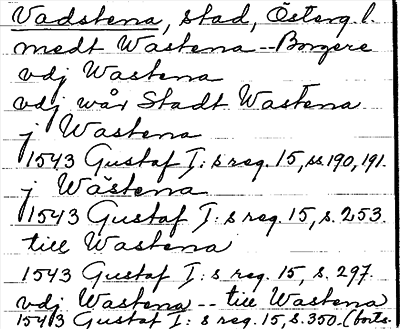 Vadstena, stad, Österg. l.
medt Wastena -- Borgere
vdj Wastena
vdj wår Stadt Wastena
j Wastena
1543 Gustaf I:s reg. 15, ss. 190, 191.
j Wästena
1543 Gustaf I:s reg. 15, s. 253.
till Wastena
1543 Gustaf I:s reg. 15, s. 297.
vdj Wastena -- till Wastena
1543 Gustaf I:s reg. 15, s. 350. (forts.